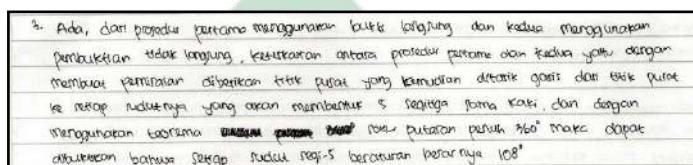 3. Ada, dari prosedur pertama menggunakan bukti langsung dan kedua menggunakan
pembuktian tidak langsung, keterkaitan antara prosedur pertama dan kedua yaitu dengan
membuat pemisalan diberikan titik pusat yang kemudian ditarik garis dari titik pusat
ke setiap sudutnya yang akan membentuk 5 segitiga sama kaki, dan dengan
menggunakan teorema putaran penuh 360° maka dapat
dibuktikan bahwa setiap sudut segi-5 beraturan besarnya 108°